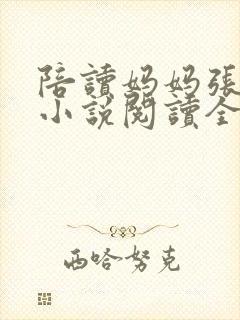 陪讀妈妈張
小說閱讀全
西哈努克